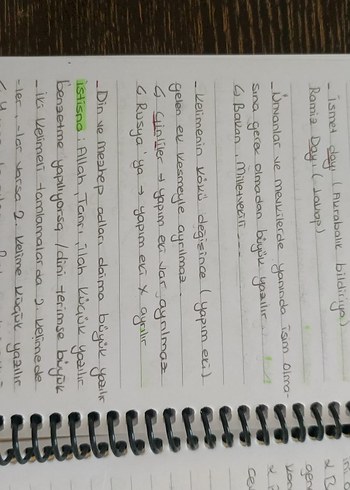 - İsmet dayı (Akrabalık bildiriyor)
Ramiz Dayı (Lakap)
- Ünvanlar ve mevkilerde yanında isim olma-
sına gerek olmadan büyük yazılır.
↳ Bakan, Milletvekili ...
- Kelimenin kökü değişince (yapım eki)
gelen ek kesmeyle ayrılmaz.
↳ Çinliler → yapım eki var ayrılmaz
↳ Rusya'ya → yapım eki x ayrılır
- Din ve mezhep adları daima büyük yazılır
istisna, Allah, Tanrı, ilah küçük yazılır
benzetme yapılıyorsa / dini terimse büyük
- İki kelimeli tamlamalarda 2. kelimede
-ler, -lar varsa 2. kelime küçük yazılır